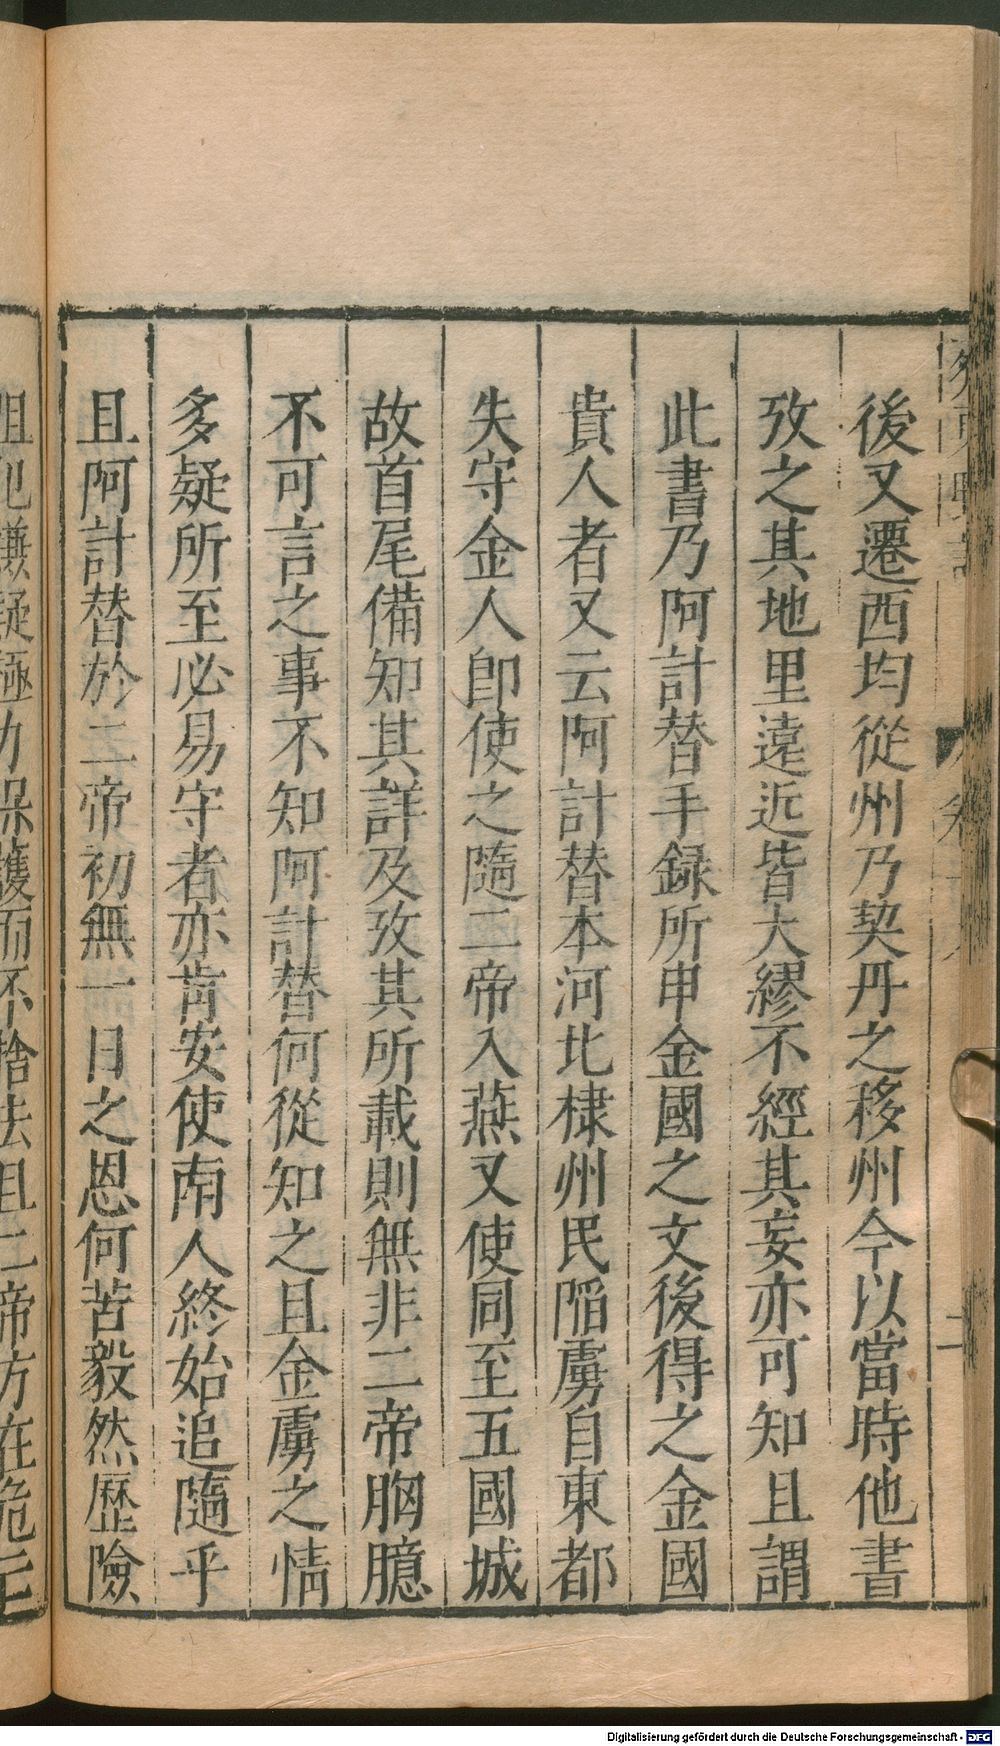 後又遷西均從州乃契丹之移州今以當時他書
攷之其地里遠近皆大繆不經其妄亦可知且謂
此書乃阿計替手録所申金國之文後得之金國
貴人者又云阿計替本河北棣州民陷虜自東都
失守金人卽使之隨二帝入燕又使同至五國城
故首尾備知其詳及攷其所載則無非二帝胸臆
不可言之事不知阿計替何從知之且金虜之情
多疑所至必易守者亦肯安使南人終始追隨乎
且阿計替於二帝初無一日之恩何苦毅然歷險
疑極力保護而不捨去且二帝方在危亡
Digitalisierung gefördert durch die Deutsche Forschungsgemeinschaft - DFG